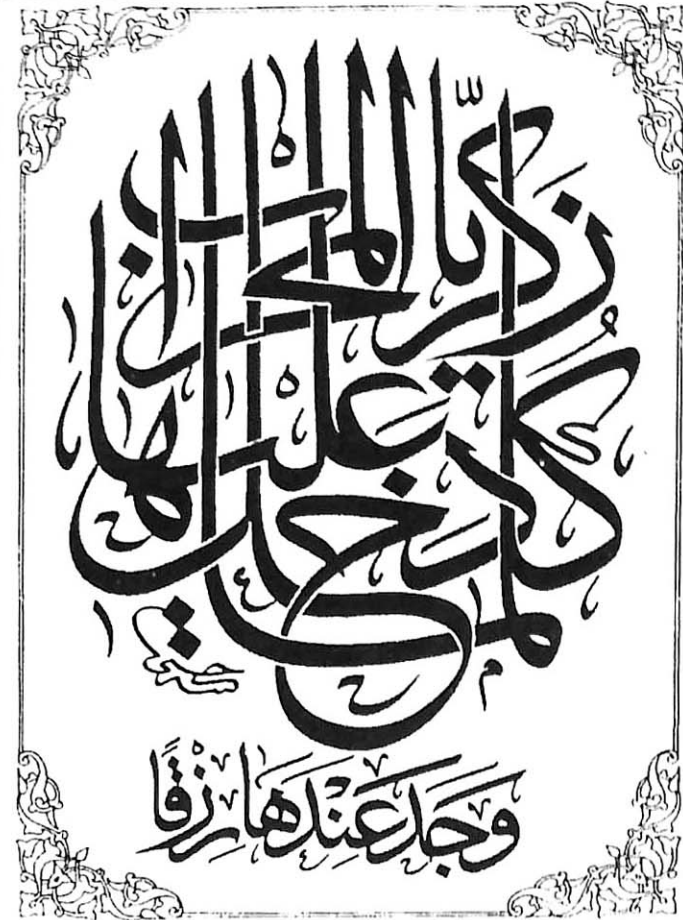 كُلَّمَا دَخَلَ عَلَيْهَا زَكَرِيَّا الْمِحْرَابَ
وَجَدَ عِنْدَهَا رِزْقًا